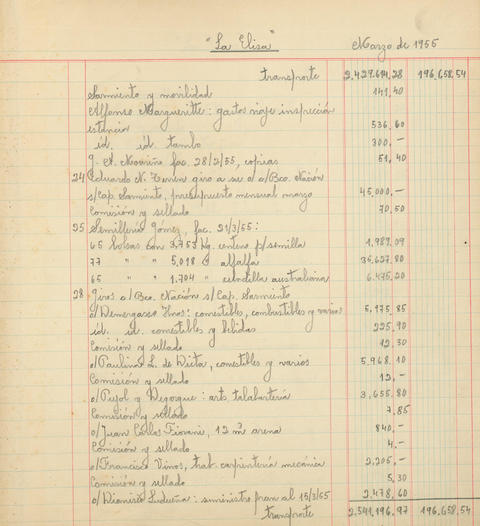 "La Elisa" Marzo de 1955
transporte 2.429.694,28 196.658.54
Sarmiento y movilidad 141,40
Alfonso Margueritte: gastos viaje inspección
estancia 536,60
id. id. tambo 300,—
fac. 28/2/55, copias 51,40
24 Eduardo N. giro a su o/ o/Bco. Nación
s/Cap. Sarmiento, presupuesto mensual marzo 45,000,—
Comisión y sellado 70,50
25 Semillería Gómez, fac. 21/3/55:
65 bolsas con 3,753 kg. centeno p/semilla 1,989,09
77 " " 5,018 " alfalfa 35,627,80
65 " " 1.704 " cebadilla australiana 6,475,20
28 Giros o/Bco. Nación s/Cap. Sarmiento
o/Demergasso Hnos: comestibles, combustibles y varios 5,975,85
id. id. comestibles y bebidas 225,90
Comisión y sellado 12,30
o/Paulino L. de comestibles y varios 5,968,10
Comisión y sellado 12,—
o/Pujol y arts talabartería 3,655,80
Comisión y sellado 7,85
o/Juan Carlos Fiorani, 12 m³ arena 840,—
Comisión y sellado 4,—
o/Francisco Vinos, trab. carpintería mecánica 2,205,—
Comisión y sellado 5,30
o/Dionisio Ludueña: suministro pan al 15/3/55 2,478,60
transporte 2.541,196,97 196,658,54